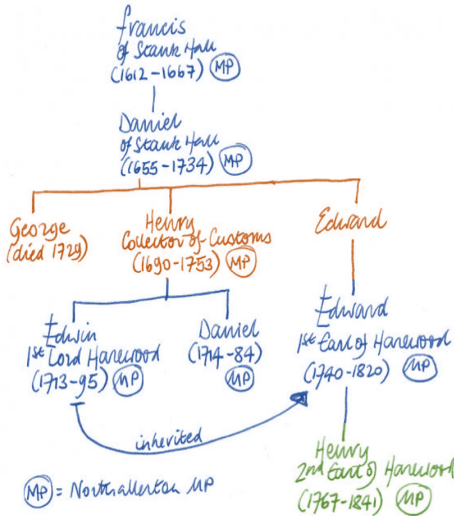 Francis
of Stank Hall
(1612-1667) MP
Daniel
of Stank Hall
(1655-1734) MP
George
(died 1729)
Henry
Collector of Customs
(1690-1753) MP
Edward
Edwin
1st Lord Harewood
(1713-95) MP
Daniel
(1714-84)
MP
Edward
1st Earl of Harewood
(1740-1820) MP
inherited
Henry
2nd Earl of Harewood
(1767-1841) MP
MP = Northallerton MP